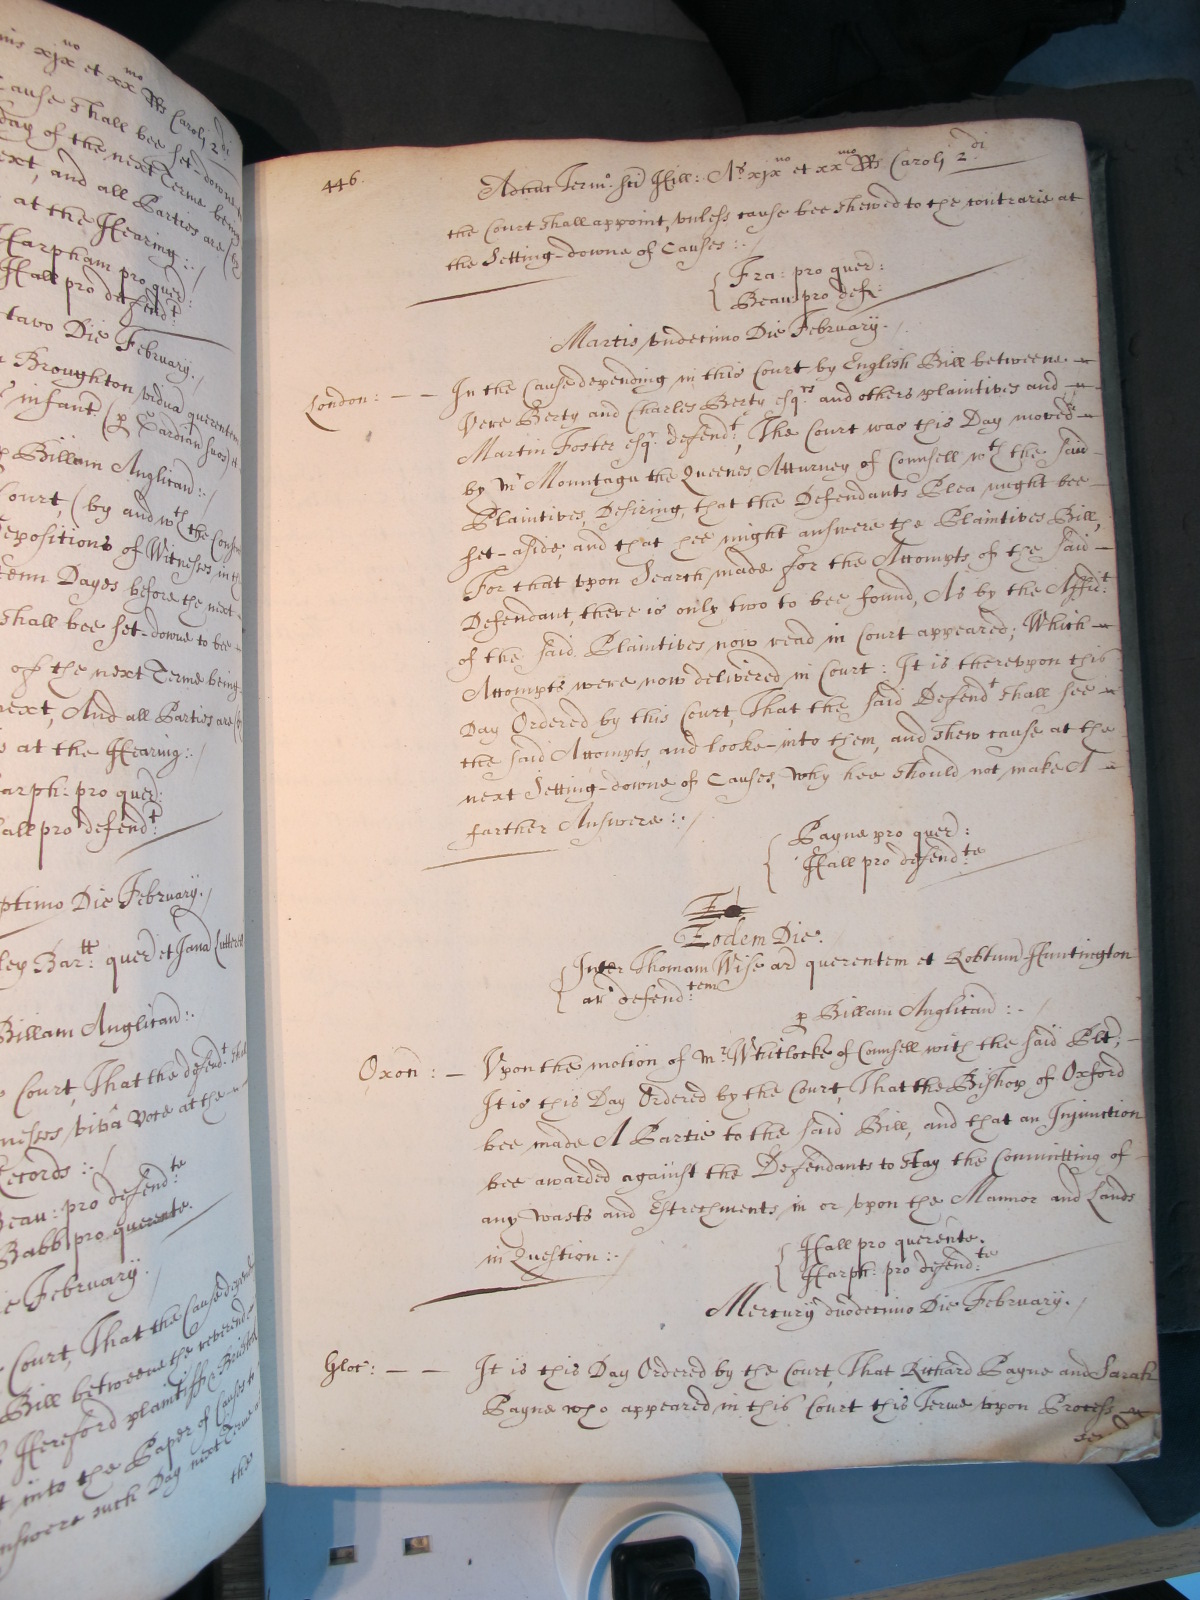 nis xjx no et xx mo RRs Caroli 2di
Cause shall bee set-downe
day of the next Terme being
ext, and all Parties are
at the Hearing :./
Harpham pro quer:
Hall pro defendt:
tavo Die February./
Broughton vidua querentem
infant (p Gardian suos) et
Billam Anglican :./
Court, (by and wth the Consent
Depositions of Witnesses in th
tenn Dayes before the next
shall bee set-downe to bee
of the next Terme being
next, And all Parties are
at the Hearing :./
arph: pro quer:
all pro defendt:
ptimo Die February./
ley Bartt: quer et Jana Luttrell
Billam Anglican :.
Court, That the defendt shall
nesses vivâ voce at the
Records :./
Beau: pro defendte:
Babb pro querente.
e February.
Court, That the Cause depend
Bill betweene the reverend
Hereford plaintiff & Bristol
t into the Paper of Causes to
nswere such Day next Terme
the
446.
Adhuc Termo: Sci Hill: Ao xjx no et xx mo RRs Caroli 2di
the Court shall appoint, vnless cause bee shewed to the contrarie at
the Setting-downe of Causes :./
Fra: pro quer:
Beau: pro def:
Martis vndecimo Die February./
London: — — In the Cause depending in this Court by English Bill betweene
Vere Berty and Charles Berty esqrs and others plaintives and
Martin Foster esqr: defendt: The Court was this Day moved
by Mr Mountagu the Queenes Atturney of Counsell wth the said
Plaintives, Desiring, that the Defendants Plea might bee
set-aside, and that hee might answere the Plaintives Bill,
For that vpon Search made for the Attempts of the said
Defendant, there is only two to bee found, As by the Affidt:
of the said Plaintives now read in Court appeared; Which
Attempts were now delivered in Court: It is therevpon this
Day Ordered by this Court, That the said Defendt shall see
the said Attempts, and looke-into them, and shew cause at the
next Setting-downe of Causes, why hee should not make A
farther Answere :./
Payne pro quer:
Hall pro defendte:
Eodem Die.
Inter Thomam Wise ar querentem et Robtum Huntington
ar defendtem:
p Billam Anglican :./
Oxon: — Vpon the motion of Mr: Whitlocke of Counsell with the said Plt;
It is this Day Ordered by the Court, That the Bishop of Oxford
bee made A Partie to the said Bill, and that an Injunction
bee awarded against the Defendants to stay the Comitting of
any wasts and Estrepments in or vpon the Mannor and Lands
in Question :./
Hall pro querente.
Harph: pro defendte:
Mercury duodecimo Die February./
Gloc: — — It is this Day Ordered by the Court, That Richard Payne and Sarah
Payne who appeared in this Court this Terme vpon Process